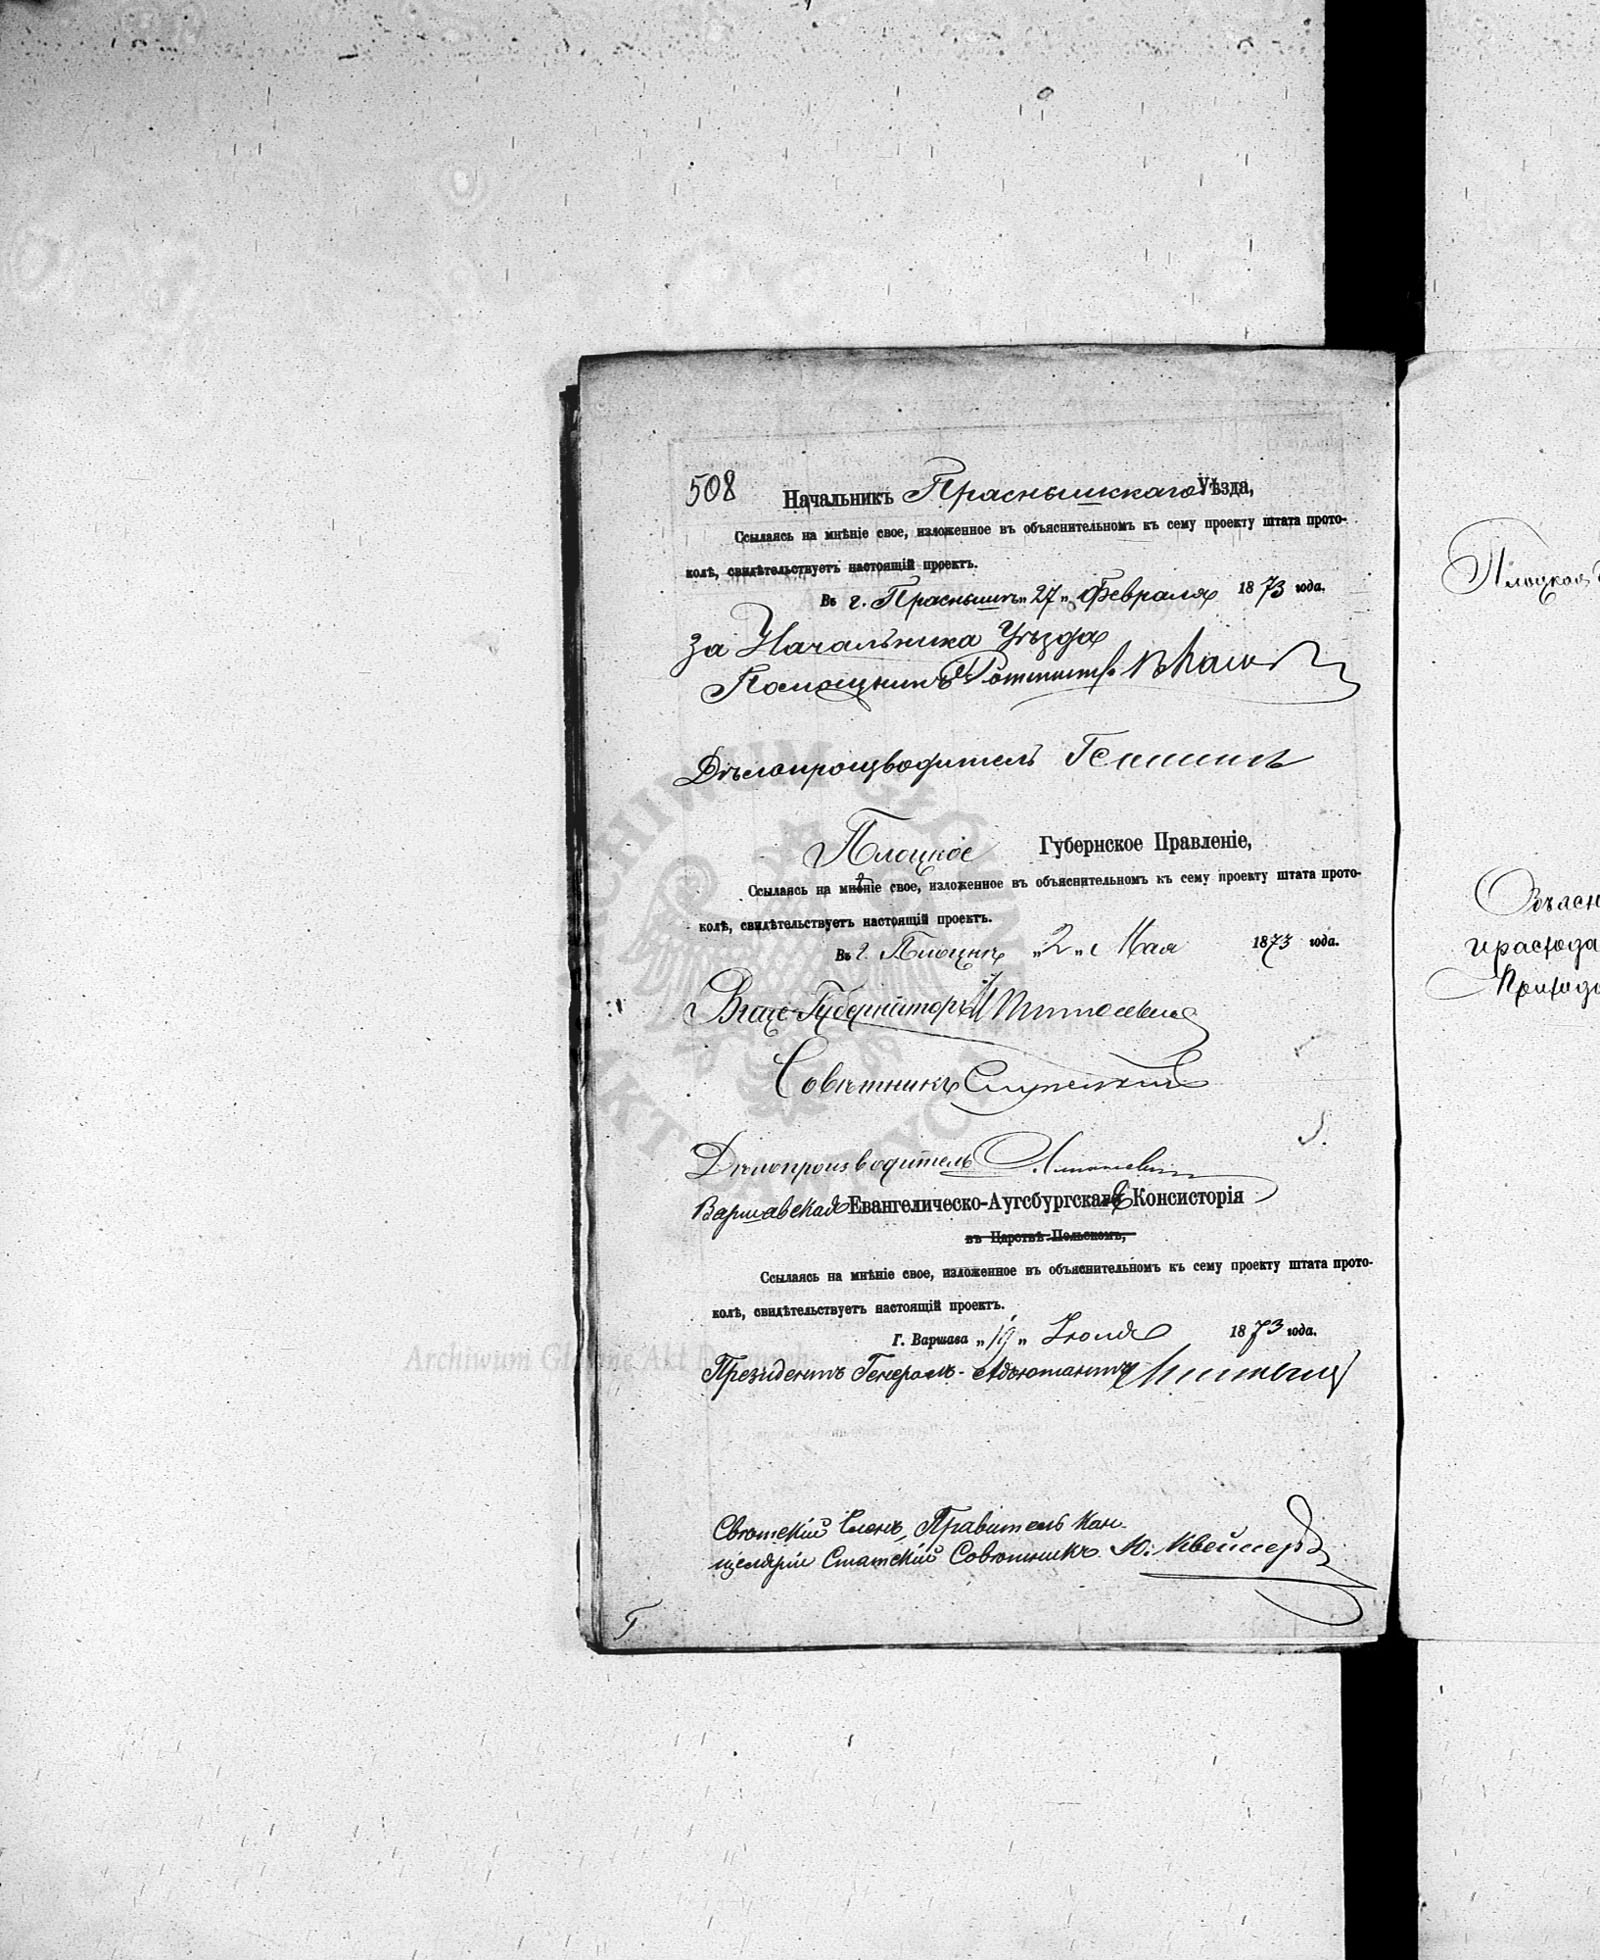 508 Начальникъ Праснышскаго Уѣзда,
Ссылаясь на мнѣніе свое, изложенное въ объяснительномъ къ сему проекту штата прото-
колѣ, свидѣтельствуетъ настоящій проектъ.
Въ г. Праснышѣ „27„ Февраля 1873 года.
За Начальника Уѣзда
Помощникъ Ротмистръ
Дѣлопроизводитель
Плоцкое Губернское Правленіе,
Ссылаясь на мнѣніе свое, изложенное въ объяснительномъ къ сему проекту штата прото-
колѣ, свидѣтельствуетъ настоящій проектъ.
Въ г. Плоцкѣ „2„ Мая 1873 года.
Вице-Губернаторъ
Совѣтникъ
Дѣлопроизводитель
Варшавская Евангелическо-Аугсбургская Консисторія
въ Царствѣ Польскомъ,
Ссылаясь на мнѣніе свое, изложенное въ объяснительномъ къ сему проекту штата прото-
колѣ, свидѣтельствуетъ настоящій проектъ.
Г. Варшава „19„ Іюля 1873 года.
Президентъ Генералъ-Адъютантъ
Свѣтскій Членъ, Правитель Кан-
целяріи Статскій Совѣтникъ Ю.
Плоцкая
Объясн
прихода
Archiwum Główne Akt Dawnych
ARCHIWUM GŁÓWNE AKT DAWNYCH